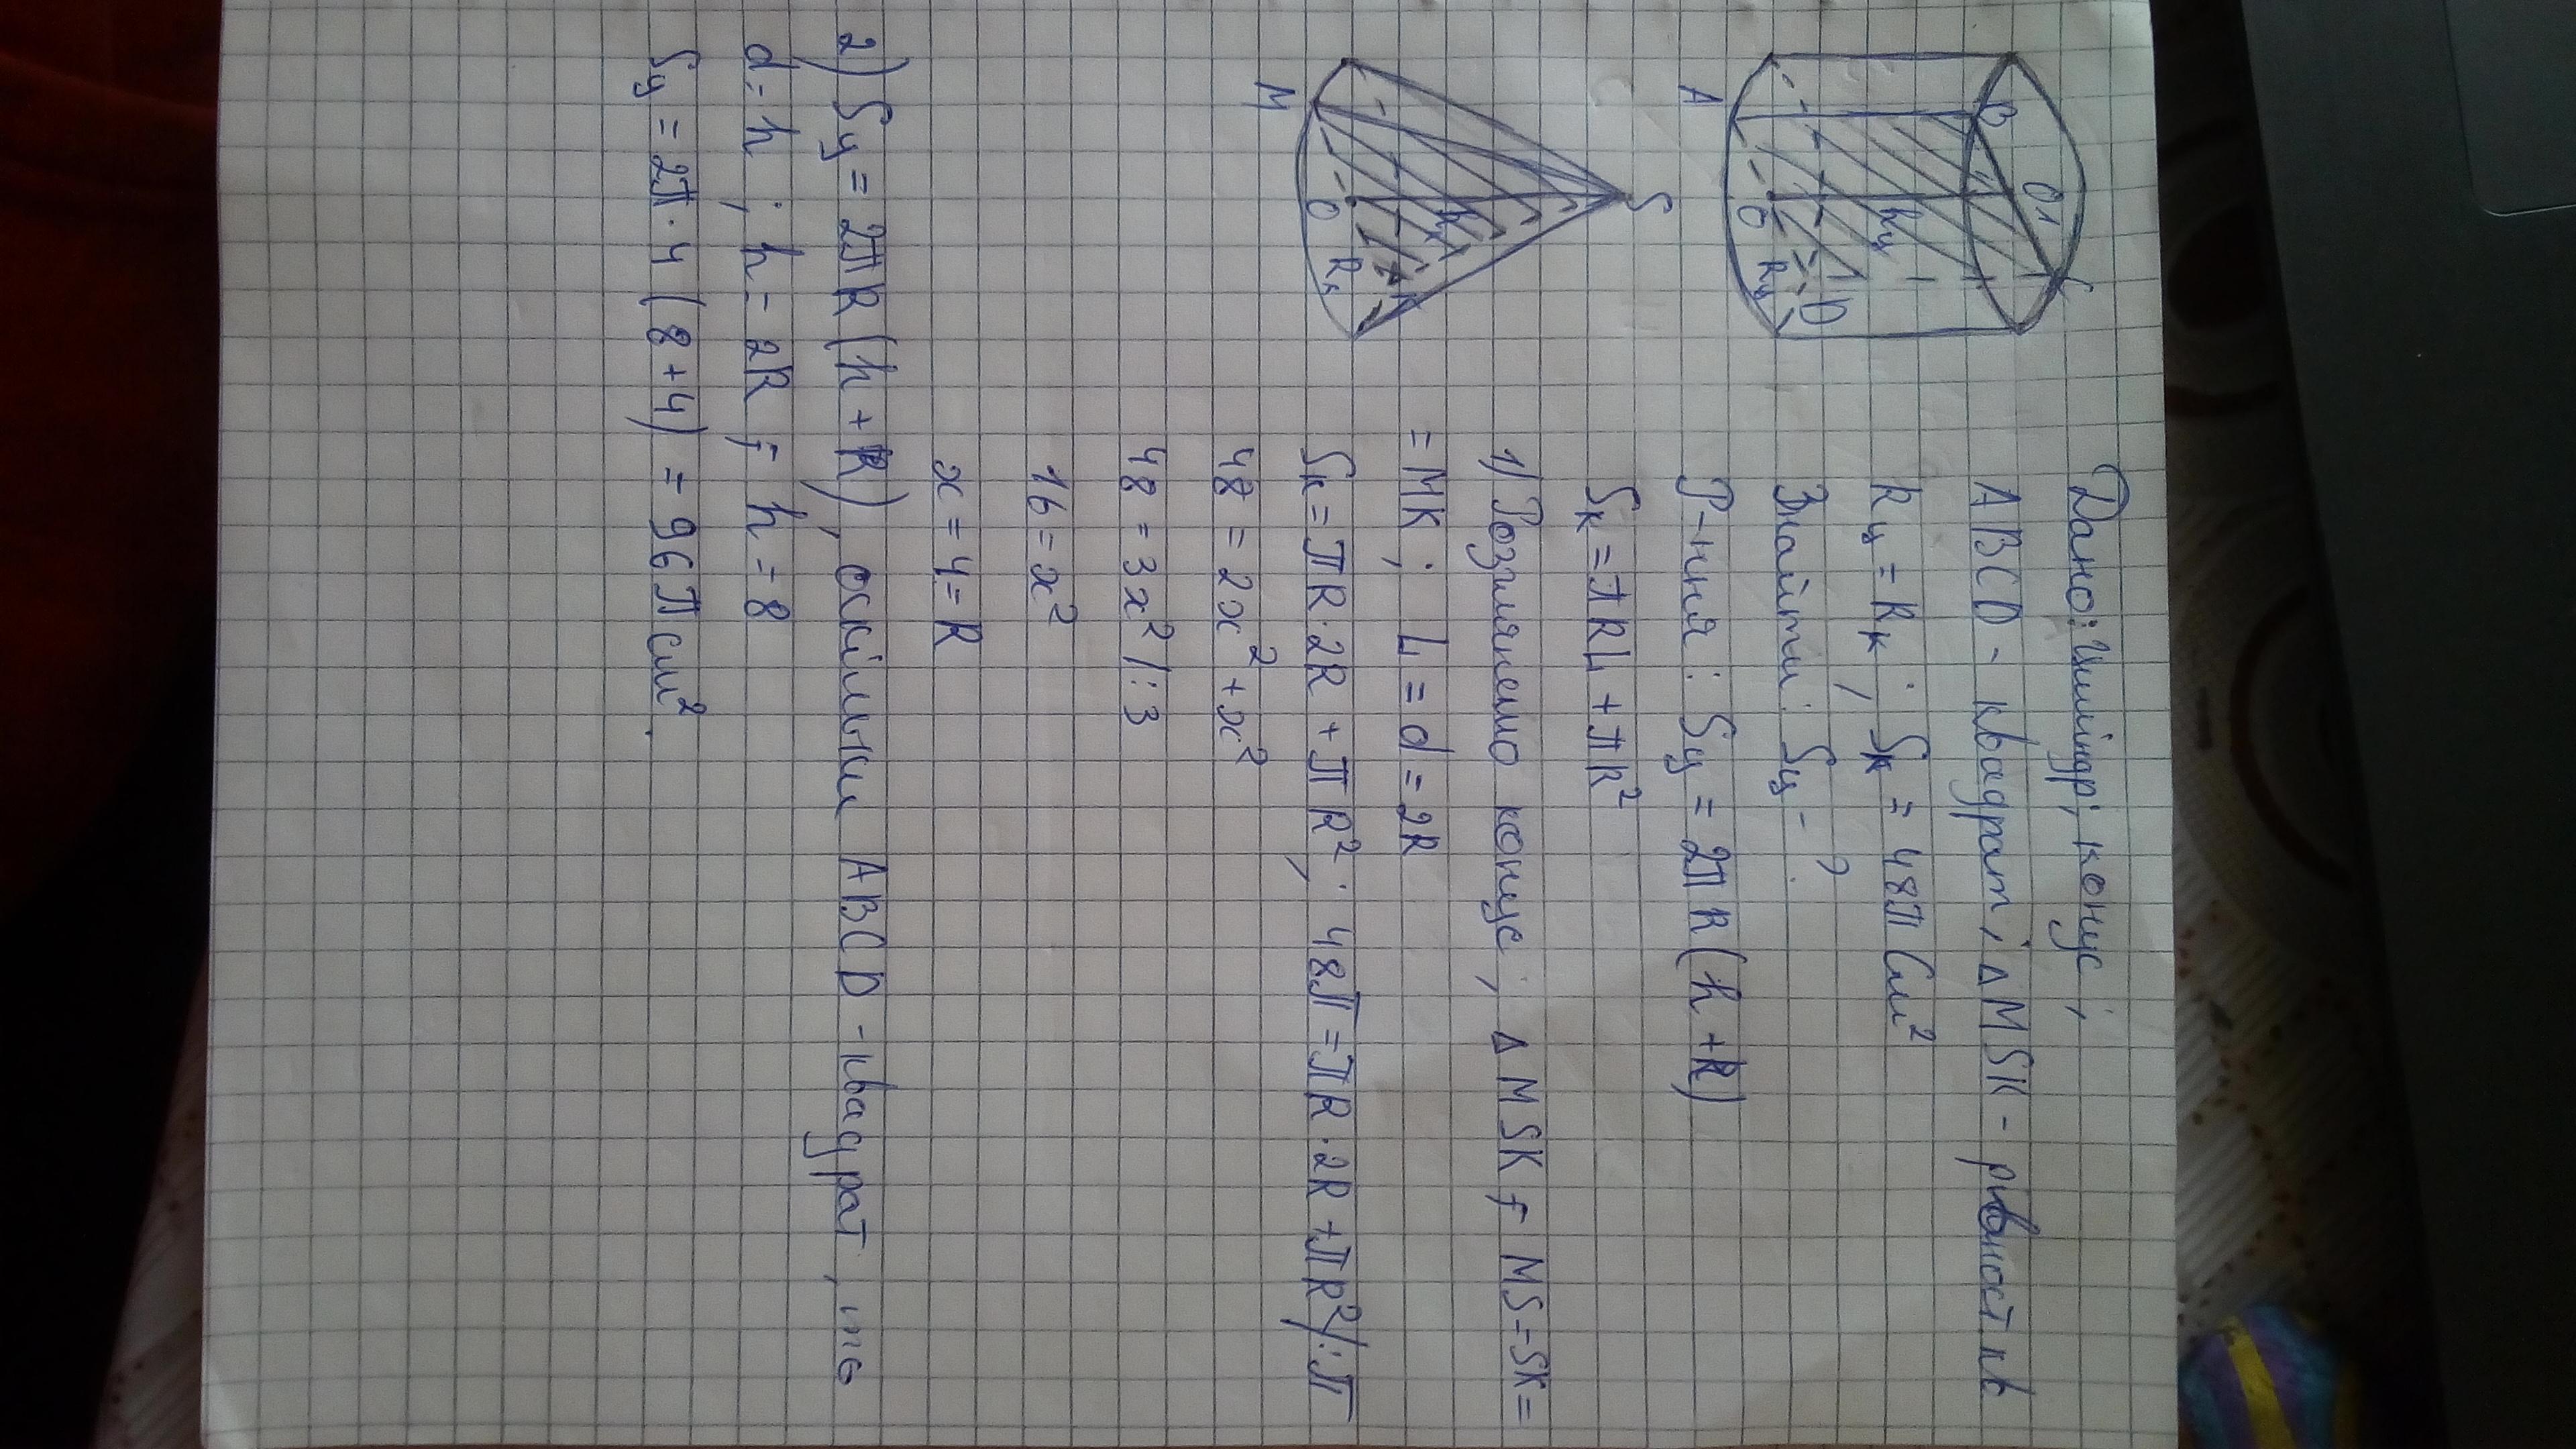 Дано: Циліндр; конус;
ABCD - квадрат; △MSK - рівност. к
Rц = Rк; Sк = 48π см²
Знайти: Sц - ?
Р-ння: Sц = 2πR(h+R)
Sк = πRL + πR²
1) Розглянемо конус; △MSK; MS=SK=
=MK; L=d=2R
Sк=πR·2R+πR²; 48π=πR·2R+πR²/:π
48 = 2x²+x²
48 = 3x² /:3
16 = x²
x = 4 = R
2) Sц = 2πR(h+R), оскільки ABCD - квадрат, то
d=h; h=2R; h=8
Sц = 2π·4(8+4) = 96π см².
B
C
O1
A
hц
O
Rц
D
S
hк
M
O
Rк
K